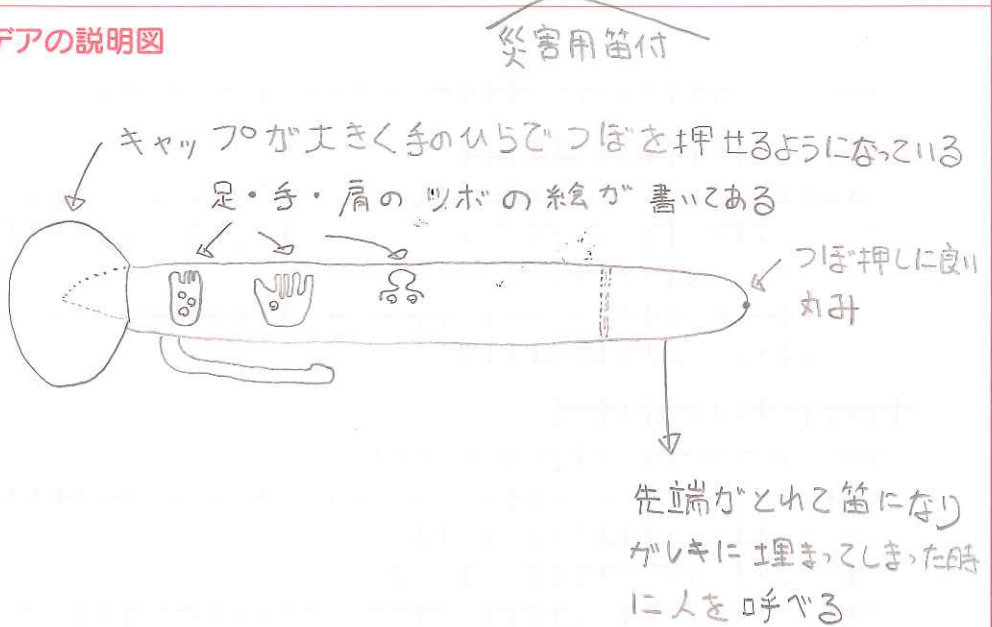 デアの説明図
災害用笛付
キャップが大きく手のひらでつぼを押せるようになっている
足・手・肩のツボの絵が書いてある
つぼ押しに良い
丸み
先端がとれて笛になり
ガレキに埋まってしまった時
に人を呼べる